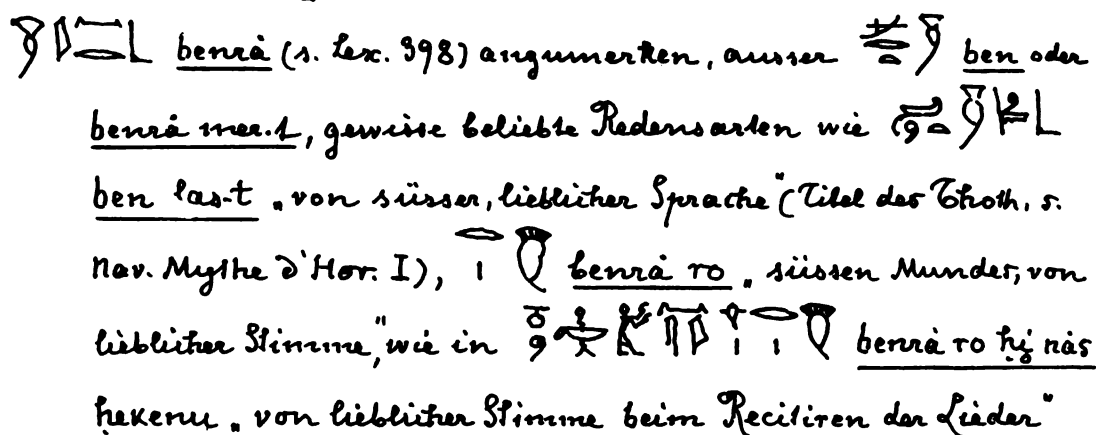 benrȧ (s. Lex. 398) anzumerken, ausser ben oder
benrȧ mer.t, gewisse beliebte Redensarten wie
ben las-t „von süsser, lieblicher Sprache" (Titel des Thoth, s.
Nav. Mythe d'Hor. I), benrȧ ro „süssen Mundes, von
lieblicher Stimme," wie in benrȧ ro ḥi nȧs
ḥekenu „von lieblicher Stimme beim Recitiren der Lieder"